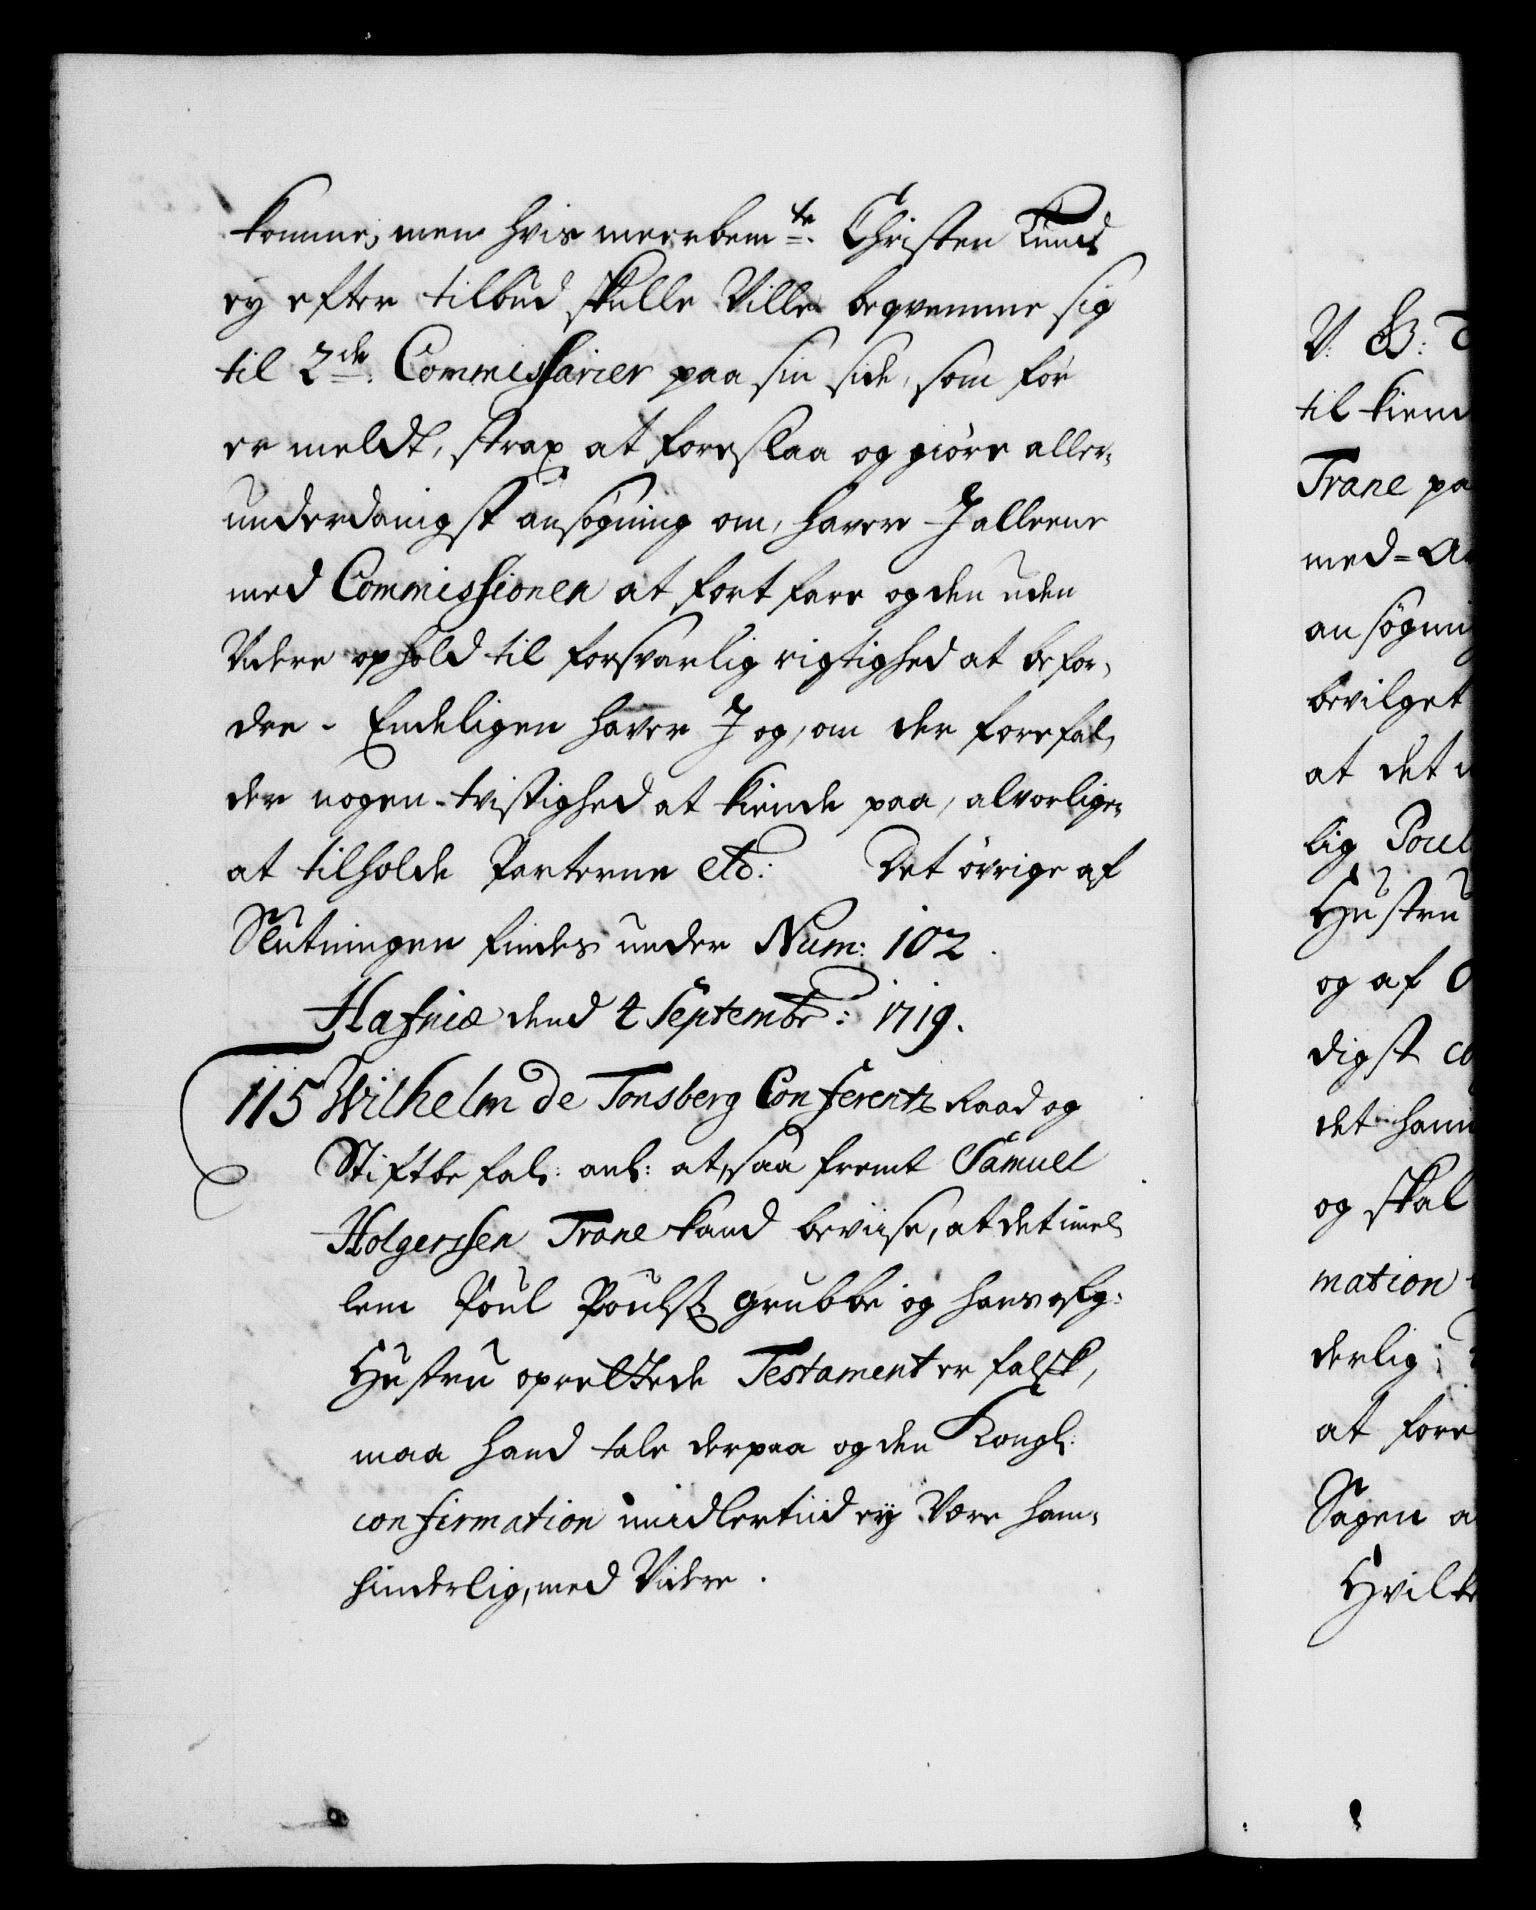 komme, men hvis meerbem:te Christen Knuds
ey efter tilbud skulle Ville beqvemme sig
til 2de: Commissarier paa sin side, som før
er meldt, strax at foreslaa og giøre aller-
underdanigst ansøgning om, haver I alleene
med Commissionen at fort fare og den uden
Videre ophold til forsvarlig rigtighed at befor-
dre - Endeligen haver I og, om der forefal-
der nogen tvistighed at kiende paa, alvorligen
at tilholde Parterne etc: Det øvrige af
Slutningen findes under Num: 102.
Hafniæ dend 4 Septembr: 1719.
115 Wilhelm de Tonsberg Conferentz Raad og
Stiftbefal: anl: at, saa fremt Samuel
Holgerssen Trane kand beviise, at det imel-
lem Poul Pouls: Grubbe og hans afg:
Hustru oprettede Testament er falsk,
maa hand tale derpaa og den Kongl:
confirmation imidlertiid ey Være ham
hinderlig, med Videre.
V: G: T
til kiend
Trane pa
med-A
ansøgni
bevilget
at det i
lig Poul
Hustru
og af
digst co
det ham
og skal
mation
derlig;
at fore
Sagen a
Hvilke